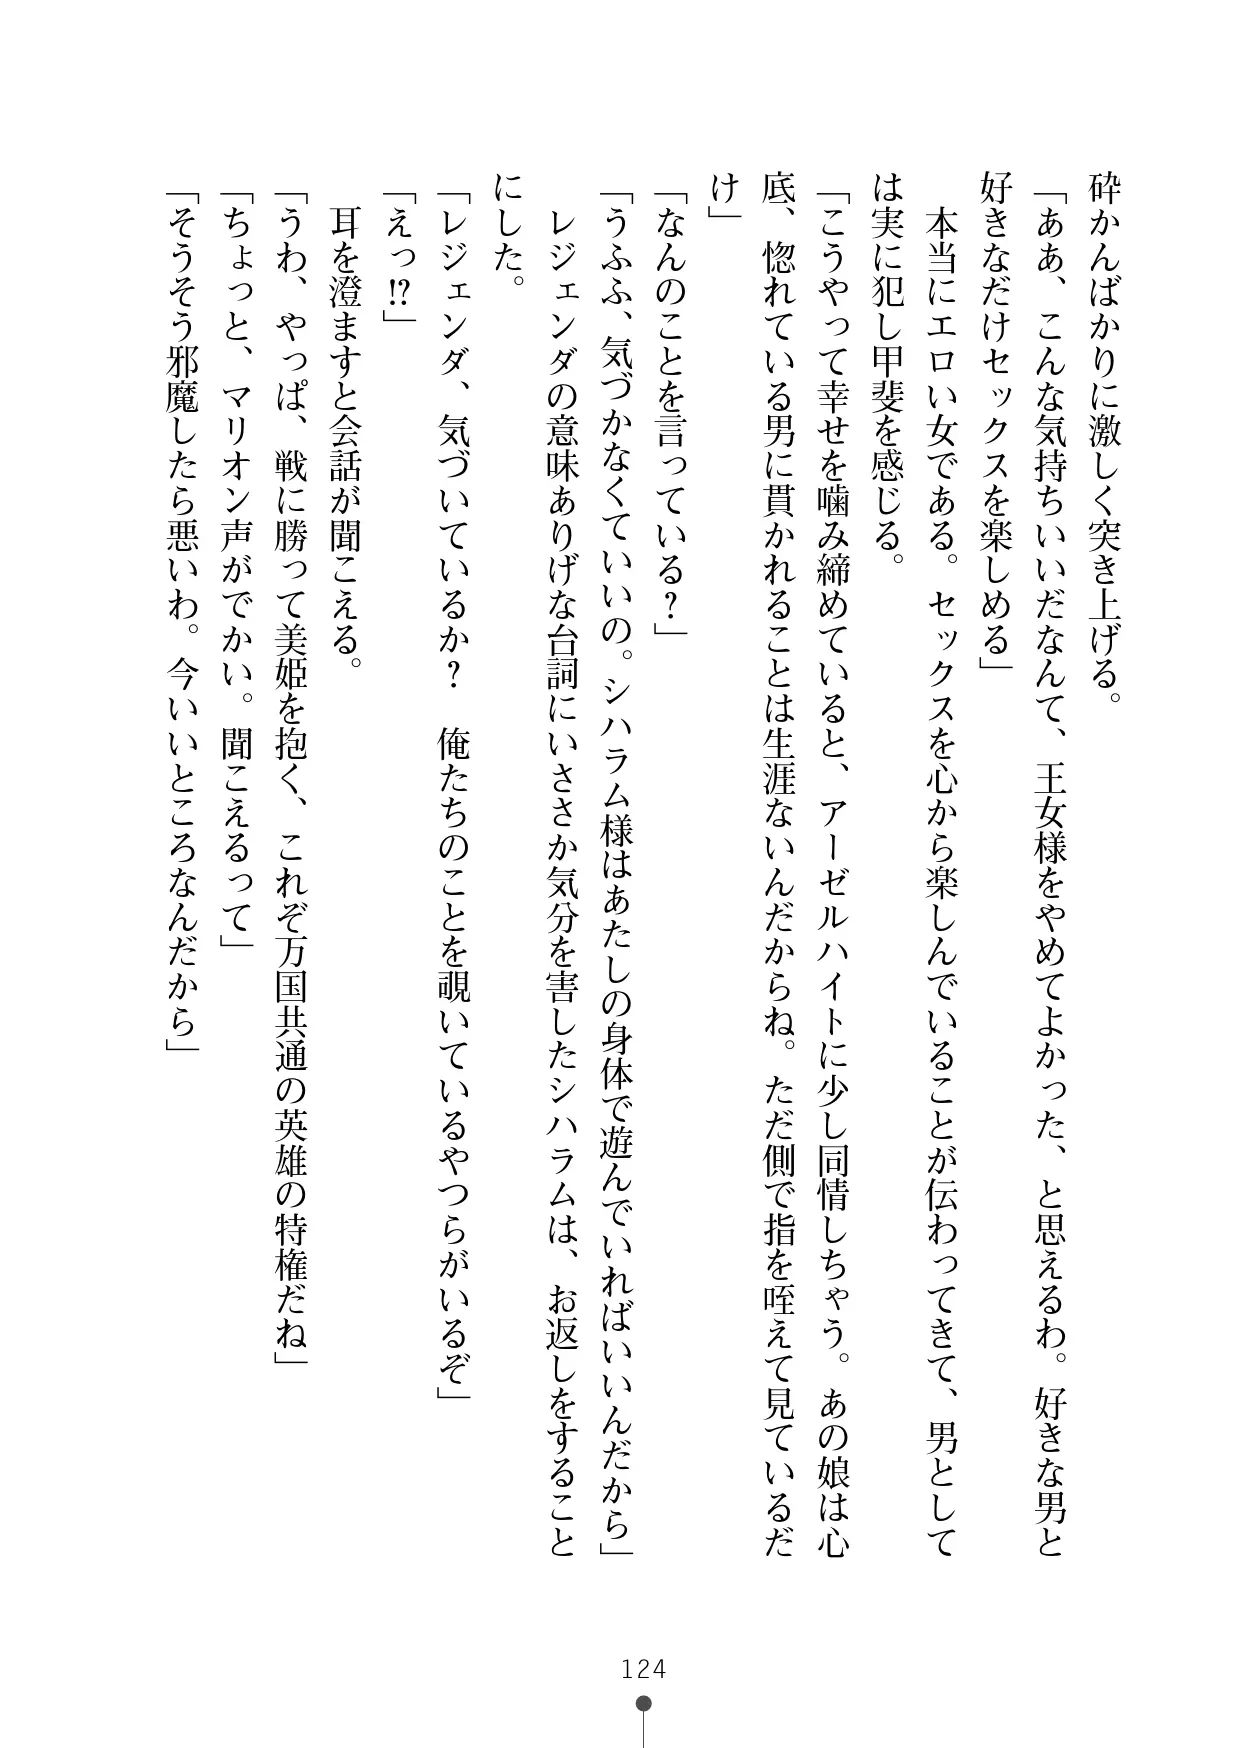 砕かんばかりに激しく突き上げる。
「ああ、こんな気持ちいいだなんて、王女様をやめてよかった、と思えるわ。好きな男と
好きなだけセックスを楽しめる」
　本当にエロい女である。セックスを心から楽しんでいることが伝わってきて、男として
は実に犯し甲斐を感じる。
「こうやって幸せを噛み締めていると、アーゼルハイトに少し同情しちゃう。あの娘は心
底、惚れている男に貫かれることは生涯ないんだからね。ただ側で指を咥えて見ているだ
け」
「なんのことを言っている？」
「うふふ、気づかなくていいの。シハラム様はあたしの身体で遊んでいればいいんだから」
　レジェンダの意味ありげな台詞にいささか気分を害したシハラムは、お返しをすること
にした。
「レジェンダ、気づいているか？　俺たちのことを覗いているやつらがいるぞ」
「えっ!?」
　耳を澄ますと会話が聞こえる。
「うわ、やっぱ、戦に勝って美姫を抱く、これぞ万国共通の英雄の特権だね」
「ちょっと、マリオン声がでかい。聞こえるって」
「そうそう邪魔したら悪いわ。今いいところなんだから」
124